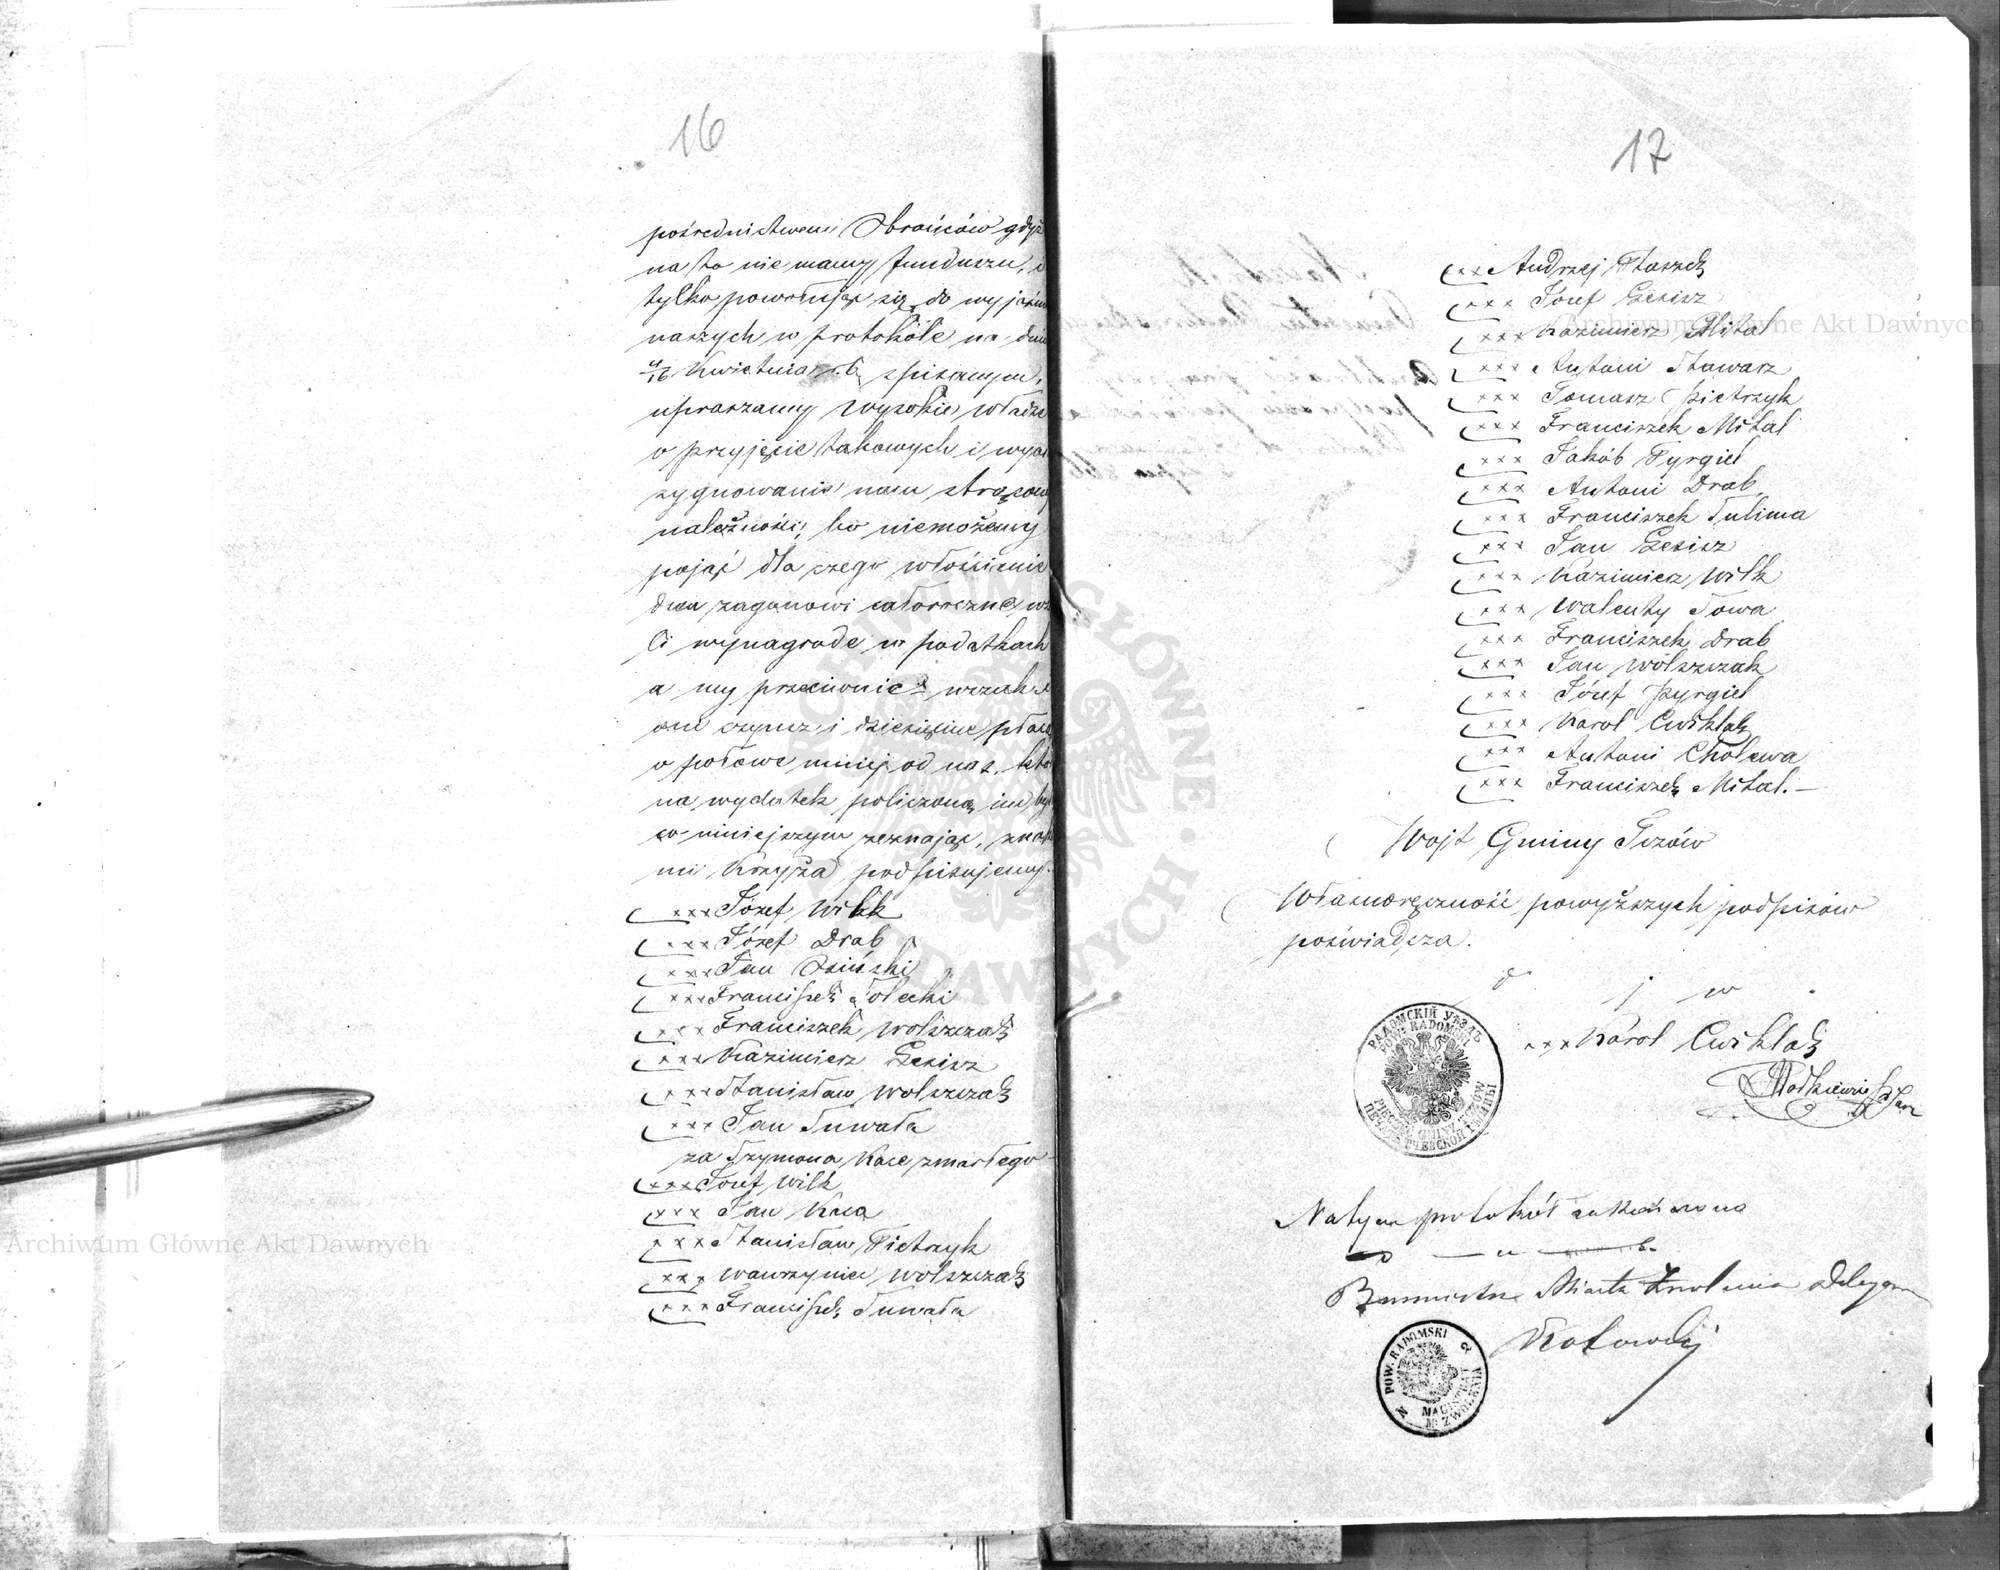 16
pośrednictwem Obrońców gdyż
na to nie mamy funduszu, i
tylko powołując się do wyjaśn
naszych w protokóle na dni
4/16 Kwietnia r. b. spisanym,
upraszamy wysokie władze
o przyjęcie takowych i wya
sygnowanie nam strącony
należności, bo niemożemy
pojąć dla czego włościanie
dwu zagonowi całoroczne, wz
li wynagrode w podatkach
a my przeciwnie, wszak
oni czynsz i dziesięcine płacą
o połowe mniej od nas, któ
na wydatek policzoną im by
co niniejszym zeznając, znak
mi Krzyża podpisujemy.
xxx Józef Wilk
xxx Józef Drab
xxx Jan Osiński
xxx Franciszek Solecki
xxx Franciszek Wolszczak
xxx Kazimierz Gęsisz
xxx Stanisław Wolszczak
xxx Jan Suwała
za Szymona Kace zmarłego
xxx Józef Wilk
xxx Jan Kaca
xxx Stanisław Pietrzyk
xxx Wawrzyniec Wolszczak
xxx Franciszek Suwała
17
xxx Andrzej Ptaszek
xxx Józef Gęsisz
xxx Kazimierz Mital
xxx Antoni Stawarz
xxx Tomasz Pietrzyk
xxx Franciszek Mital
xxx Jakób Pyrgiel
xxx Antoni Drab
xxx Franciszek Sulima
xxx Jan Gęsisz
xxx Kazimierz Wilk
xxx Walenty Sowa
xxx Franciszek Drab
xxx Jan Wolszczak
xxx Józef Pyrgiel
xxx Karol Cwiklak
xxx Antoni Cholewa
xxx Franciszek Mital.—
Wójt Gminy Tczów
Własnoręczność powyższych podpisów
poświadcza.
xxx Karol Cwiklak
РАДОМСКІЙ УѢЗДЪ
POW: RADOMSKI
PIECZĘĆ GMINY TCZOW
Na tym protokół zakończono
Burmistrz Miasta Zwolenia Delegow
Kotowski
POW. RADOMSKI
MAGISTRAT
M. ZWOLENIA
Archiwum Główne Akt Dawnych
Archiwum Główne Akt Dawnych
ARCHIWUM GŁÓWNE AKT DAWNYCH